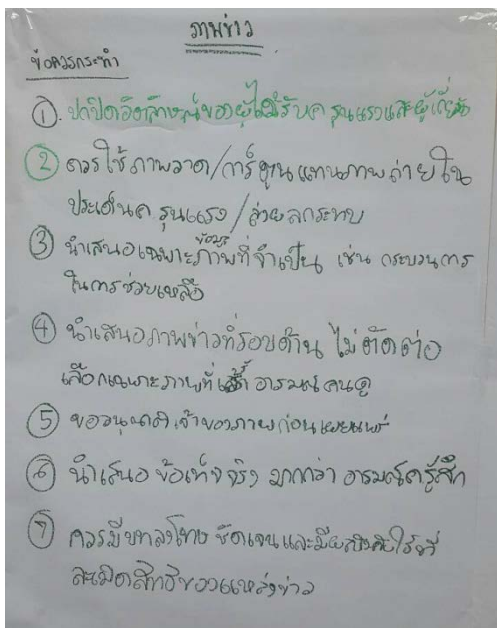 ภาพข่าว
ข้อควรกระทำ
① ปกปิดอัตลักษณ์ของผู้ได้รับค.รุนแรงและผู้เกี่ยวข้อง
② ควรใช้ภาพวาด/การ์ตูนแทนภาพถ่ายใน
ประเด็นค.รุนแรง/ส่งผลกระทบ
③ นำเสนอเฉพาะข้อมูลภาพที่จำเป็น เช่น กระบวนการ
ในการช่วยเหลือ
④ นำเสนอภาพข่าวที่รอบด้าน ไม่ตัดต่อ
เลือกเฉพาะภาพที่เร้าอารมณ์คนดู
⑤ ขออนุญาตเจ้าของภาพก่อนเผยแพร่
⑥ นำเสนอข้อเท็จจริง มากกว่า อารมณ์ค.รู้สึก
⑦ ควรมีบทลงโทษ ชัดเจนและมีผลบังคับใช้ที่
ละเมิดสิทธิของแหล่งข่าว